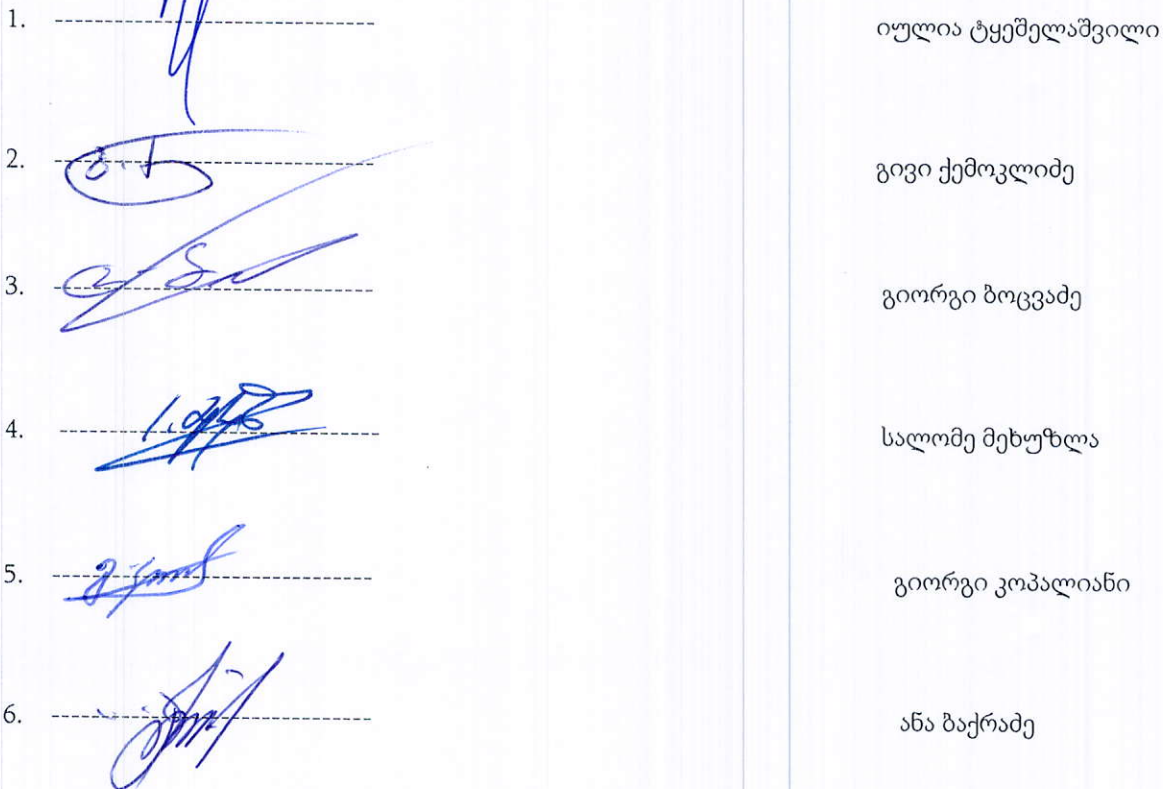 1. იულია ტყეშელაშვილი
2. გივი ქემოკლიძე
3. გიორგი ბოცვაძე
4. სალომე მეხუზლა
5. გიორგი კოპალიანი
6. ანა ბაქრაძე